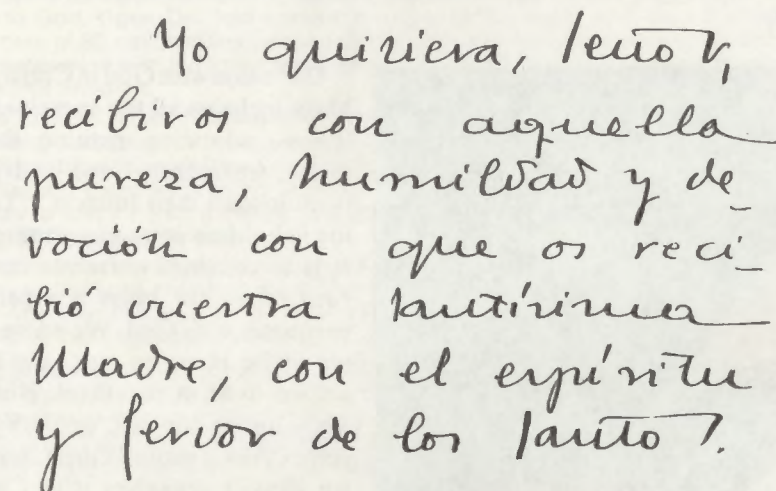 Yo quisiera, Señor,
recibiros con aquella
pureza, humildad y de_
voción con que os reci_
bió vuestra Santísima
Madre, con el espíritu
y fervor de los Santos.